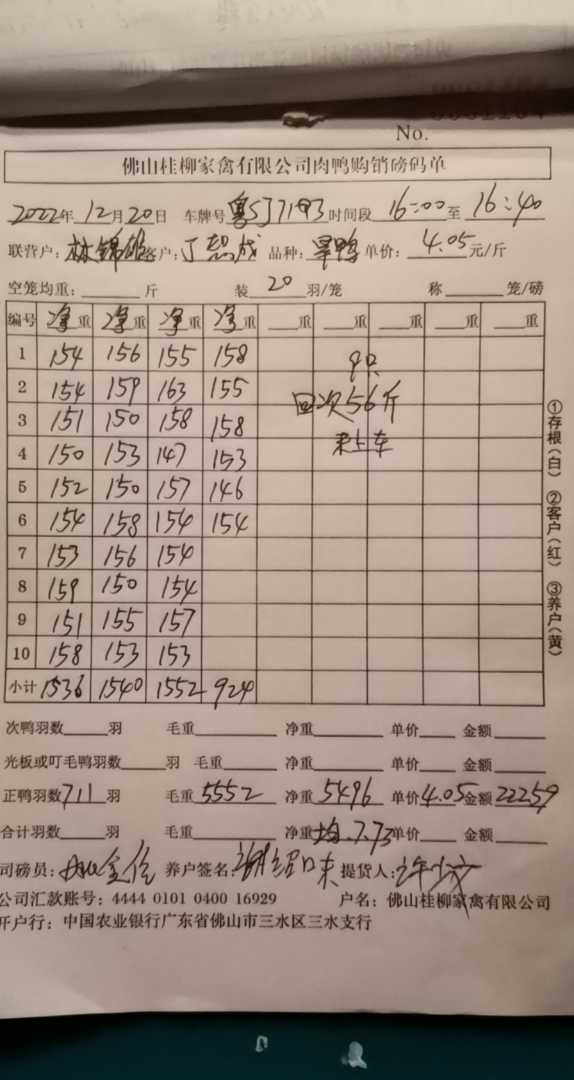 No.
佛山桂柳家禽有限公司肉鸭购销磅码单
2022年12月20日 车牌号 粤SJ7193 时间段 16:00至16:40
联营户: 林锦雄 客户: 丁 成 品种: 旱鸭 单价: 4.05元/斤
空笼均重: 斤 装20羽/笼 称 笼/磅
编号 净重 净重 净重 净重 重 重 重 重
1 154 156 155 158
2 154 159 163 155
3 151 150 158 158
4 150 153 147 153
5 152 150 157 146
6 154 158 154 154
7 153 156 154
8 159 150 154
9 151 155 157
10 158 153 153
小计 1536 1540 1552 924
9只
回次56斤
未上车
①存根(白) ②客户(红) ③养户(黄)
次鸭羽数 羽 毛重 净重 单价 金额
光板或叮毛鸭羽数 羽 毛重 净重 单价 金额
正鸭羽数711羽 毛重5552 净重5496 单价4.05金额22259
合计羽数 羽 毛重 净重均.7.73单价 金额
司磅员: 养户签名: 提货人:
公司汇款账号: 4444 0101 0400 16929 户名: 佛山桂柳家禽有限公司
开户行: 中国农业银行广东省佛山市三水区三水支行